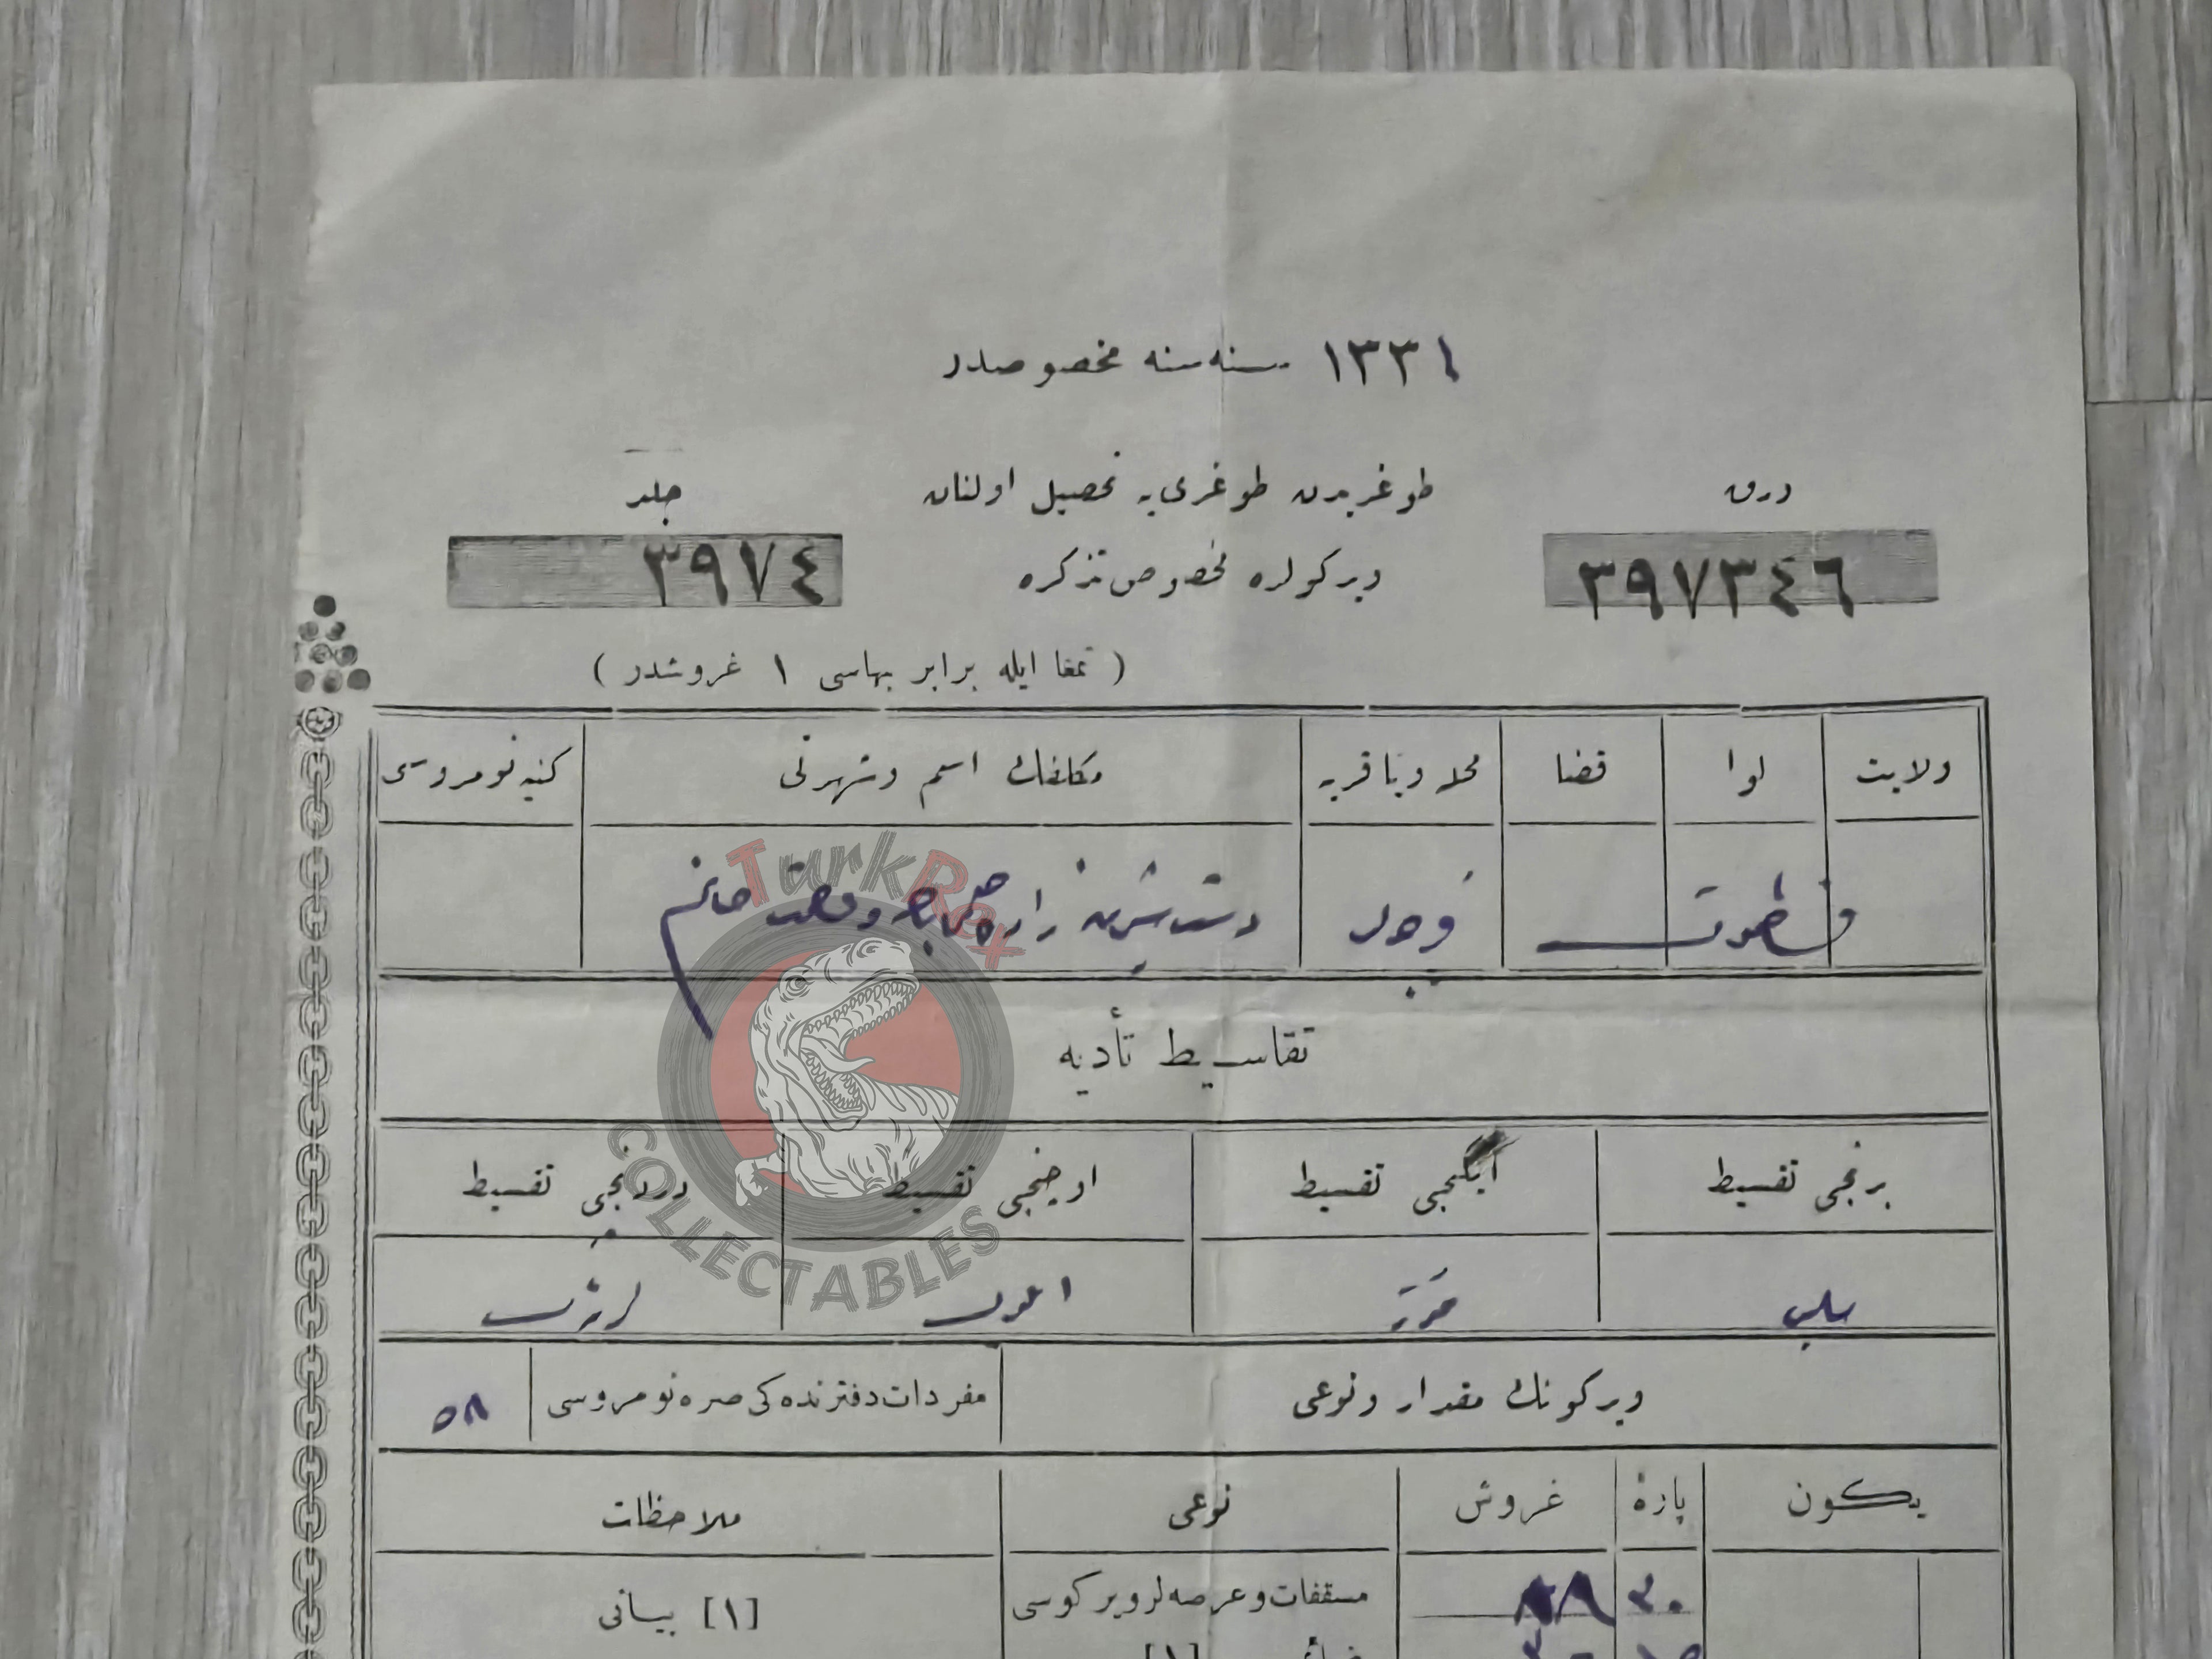 ١٣٣١ سنه سنه مخصوصدر
ورق
طوغریدن طوغری یه تحصیل اولنان
جلد
٣٩٧٣٤٦
ویرکولره مخصوص تذکره
٣٩٧٤
( تمغا ایله برابر بهاسی ١ غروشدر )
ولایت لوا قضا محله ویا قریه مکلفك اسم وشهرتی کنیه نومروسی
قسطمونی
خانم
TurkRex
تقاسیط تأدیه
برنجی تقسیط ایکنجی تقسیط اوچنجی تقسیط دردنجی تقسیط
COLLECTABLES
تموز ایلول
ویرکونك مقدار ونوعی مفردات دفترنده کی صره نومروسی ٥٨
یکون پاره غروش نوعی ملاحظات
٣٠ مسقفات وعرصه لر ویرکوسی [١] بیانی
[١]